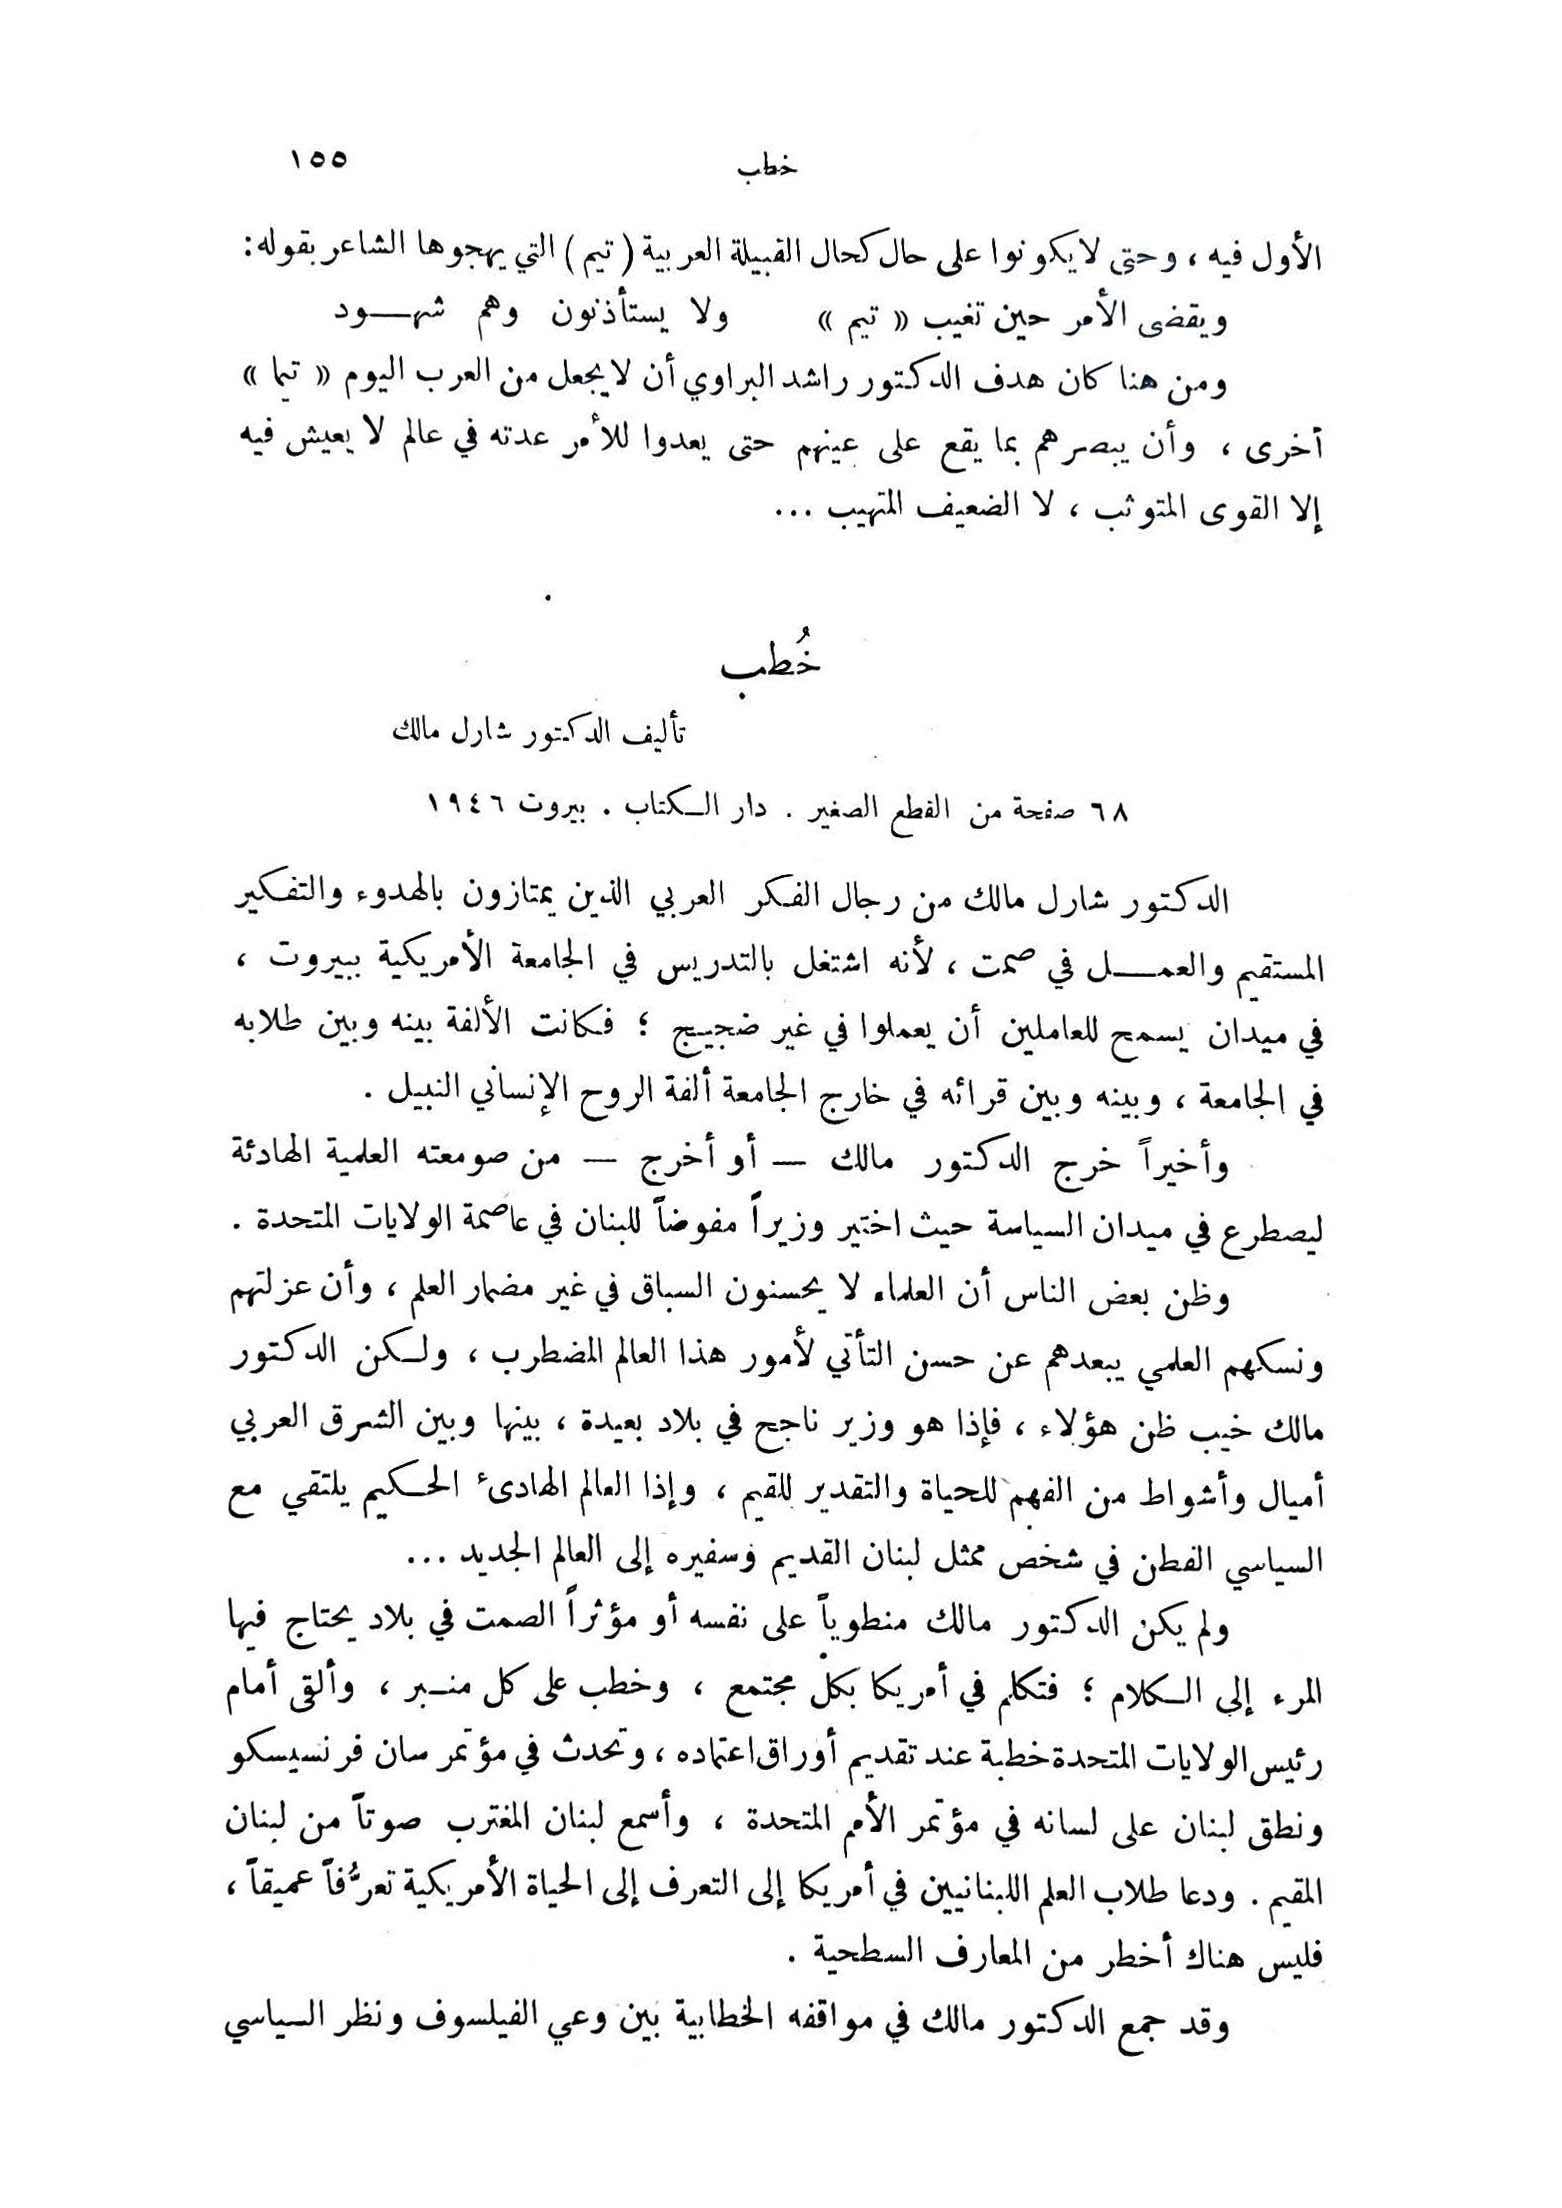 خطب ١٥٥
الأول فيه ، وحتى لا يكونوا على حال كحال القبيلة العربية ( تيم ) التي يهجوها الشاعر بقوله :
ويقضى الأمر حين تغيب « تيم » ولا يستأذنون وهم شهــود
ومن هنا كان هدف الدكتور راشد البراوي أن لا يجعل من العرب اليوم « تيما »
أخرى ، وأن يبصرهم بما يقع على عينهم حتى يعدوا للأمر عدته في عالم لا يعيش فيه
إلا القوى المتوثب ، لا الضعيف المتهيب ...
خُطب
تأليف الدكتور شارل مالك
٦٨ صفحة من القطع الصغير . دار الكتاب . بيروت ١٩٤٦
الدكتور شارل مالك من رجال الفكر العربي الذين يمتازون بالهدوء والتفكير
المستقيم والعمــل في صمت ، لأنه اشتغل بالتدريس في الجامعة الأمريكية ببيروت ،
في ميدان يسمح للعاملين أن يعملوا في غير ضجيج ؛ فكانت الألفة بينه وبين طلابه
في الجامعة ، وبينه وبين قرائه في خارج الجامعة ألفة الروح الإنساني النبيل .
وأخيراً خرج الدكتور مالك — أو أخرج — من صومعته العلمية الهادئة
ليصطرع في ميدان السياسة حيث اختير وزيراً مفوضاً للبنان في عاصمة الولايات المتحدة .
وظن بعض الناس أن العلماء لا يحسنون السباق في غير مضمار العلم ، وأن عزلتهم
ونسكهم العلمي يبعدهم عن حسن التأتي لأمور هذا العالم المضطرب ، ولكن الدكتور
مالك خيب ظن هؤلاء ، فإذا هو وزير ناجح في بلاد بعيدة ، بينها وبين الشرق العربي
أميال وأشواط من الفهم للحياة والتقدير للقيم ، وإذا العالم الهادئ الحكيم يلتقي مع
السياسي الفطن في شخص ممثل لبنان القديم وسفيره إلى العالم الجديد ...
ولم يكن الدكتور مالك منطوياً على نفسه أو مؤثراً الصمت في بلاد يحتاج فيها
المرء إلى الكلام ؛ فتكلم في أمريكا بكل مجتمع ، وخطب على كل منـبر ، وألقى أمام
رئيس الولايات المتحدة خطبة عند تقديم أوراق اعتماده ، وتحدث في مؤتمر سان فرنسيسكو
ونطق لبنان على لسانه في مؤتمر الأمم المتحدة ، وأسمع لبنان المغترب صوتاً من لبنان
المقيم . ودعا طلاب العلم اللبنانيين في أمريكا إلى التعرف إلى الحياة الأمريكية تعرُّفاً عميقاً ،
فليس هناك أخطر من المعارف السطحية .
وقد جمع الدكتور مالك في مواقفه الخطابية بين وعي الفيلسوف ونظر السياسي